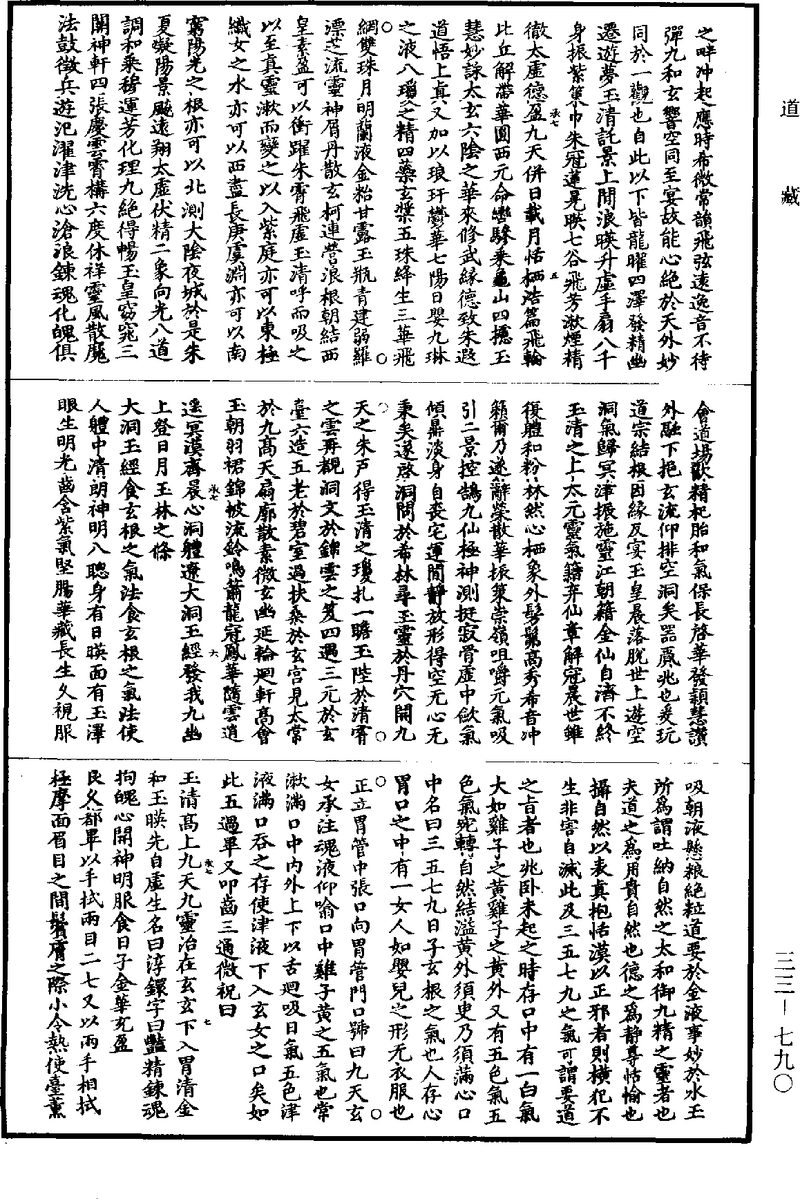 道藏
之畔冲起應時希微常韻飛弦遠逸音不待
彈九和玄響空同至宴故能心絕於天外妙
同於一觀也自此以下皆龍曜四澤發精幽
遷遊夢玉清託景上間浪暎升虛手扇八千
身振紫策巾朱冠蓮晃暎七谷飛芳漱煙精
徹太虛德盈九天併日載月恬栖浩篇飛輪
比丘解帶華圓西元命轡驂乘龜山四據玉
慧妙詠太玄六陰之華來修武緣德致朱遐
道悟上真又加以琅玕鬱華七陽日嬰九琳
之液八瑙之精四藥玄漿五珠絳生三華飛
綱雙珠月明蘭液金粭甘露玉瓶青建弱羅
漂芝流靈神眉丹散玄柯連營浪根朝結西
皇素盈可以衝躍朱霄飛虛玉清呼而吸之
以至真靈漱而變之以入紫庭亦可以東極
織女之水亦可以西盡長庚虞淵亦可以南
窮陽光之根亦可以北測大陰夜城於是朱
夏凝陽景飈遠翔太虛伏精二象向光八道
調和乘穆運芳化理九絕得暢玉皇窈窕三
關神軒四張慶雲霄構六度休祥靈風散魔
法鼓徵兵遊汜濯津洗心滄浪鍊魂化魄俱
會道場獸精杞胎和氣保長啓華發穎慧讚
外融下挹玄流仰排空洞矣器厲兆也爰玩
道宗結根因緣反宴玉皇晨落脫世上遊空
洞氣歸冥津振施靈江朝籍金仙自濟不終
玉清之上太元靈氣籍弃仙章解冠晨世雖
復體和粉林然心栖象外髣髴高秀希音冲
籟爾乃遂辭榮散華振策崇嶺咀嚼元氣吸
引二景控鵠九仙極神測挺寂骨虛中歛氣
傾鼎淡身自喪宅運閒靜放形得空无心无
秉矣遂啓洞問於希林尋玉靈於丹穴開九
天之朱戶得玉清之瓊札一瞻玉陛於清霄
之雲再覩洞文於錦雲之笈四遇三元於玄
臺六造五老於碧室過扶桑於玄宮見太常
於九高天扇廓散素微玄幽延輪迴軒高會
玉朝羽裙錦帔流鈴鳴蕭龍冠鳳華隨雲逍
遥冥漠齋晨心洞體遼大洞玉經發我九幽
上登日月玉林之條
大洞玉經食玄根之氣法食玄根之氣法使
人體中清朗神明八聰身有日暎面有玉澤
眼生明光齒含紫氣堅腸華藏長生久視服
吸朝液懸粮絕粒道要於金液事妙於水玉
所為謂吐納自然之太和御九精之靈者也
夫道之為用貴自然也德之為靜尊恬愉也
攝自然以表真抱恬漠以正邪者則橫犯不
生非害自滅此及三五七九之氣可謂要道
之旨者也兆卧未起之時存口中有一白氣
大如雞子之黃雞子之黃外又有五色氣五
色氣宛轉自然結溢黃外須臾乃須滿心口
中名曰三五七九日子玄根之氣也人存心
胃口之中有一女人如嬰兒之形无衣服也
正立胃管中張口向胃管門口號曰九天玄
女承注魂液仰喻口中雞子黃之五氣也常
漱滿口中內外上下以舌迴吸日氣五色津
液滿口吞之存使津液下入玄女之口矣如
此五過畢又叩齒三通微祝曰
玉清高上九天九靈治在玄玄下入胃清金
和玉暎先自虛生名曰淳鐶字曰豔精鍊魂
拘魄心開神明服食日子金華充盈
民父都畢以手拭兩目二七又以兩手相拭
極摩面眉目之間鬢膚之際小令熱使臺薰
三三—七九〇